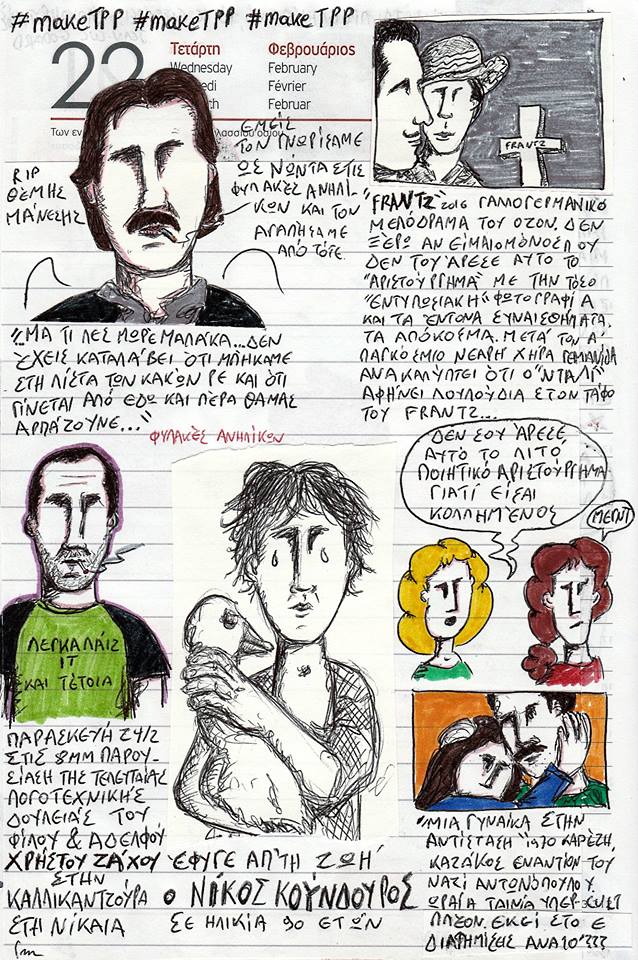 #makeTPP #makeTPP #makeTPP
22
Τετάρτη Φεβρουάριος
Wednesday February
Février
Februar
Των εν
RIP
ΘΕΜΗΣ
ΜΑΝΕΣΗΣ
ΕΜΕΙΣ
ΤΟΝ ΓΝΩΡΙΣΑΜΕ
ΩΣ ΝΩΝΤΑ ΣΤΙΣ
ΦΥΛΑΚΕΣ ΑΝΗΛΙ-
ΚΩΝ ΚΑΙ ΤΟΝ
ΑΓΑΠΗΣΑΜΕ
ΑΠΟ ΤΟΤΕ.
"ΜΑ ΤΙ ΛΕΣ ΜΩΡΕ ΜΑΛΑΚΑ... ΔΕΝ
ΕΧΕΙΣ ΚΑΤΑΛΑΒΕΙ ΟΤΙ ΜΠΗΚΑΜΕ
ΣΤΗ ΛΙΣΤΑ ΤΩΝ ΚΑΚΩΝ ΡΕ ΚΑΙ ΟΤΙ
ΓΙΝΕΤΑΙ ΑΠΟ ΕΔΩ ΚΑΙ ΠΕΡΑ ΘΑ ΜΑΣ
ΑΡΠΑΖΟΥΝΕ..."
ΦΥΛΑΚΕΣ ΑΝΗΛΙΚΩΝ
FRANTZ
"FRANTZ" 2016 ΓΑΛΛΟΓΕΡΜΑΝΙΚΟ
ΜΕΛΟΔΡΑΜΑ ΤΟΥ ΟΖΟΝ. ΔΕΝ
ΞΕΡΩ ΑΝ ΕΙΜΑΙ Ο ΜΟΝΟΣ ΠΟΥ
ΔΕΝ ΤΟΥ ΑΡΕΣΕ ΑΥΤΟ ΤΟ
"ΑΡΙΣΤΟΥΡΓΗΜΑ" ΜΕ ΤΗΝ ΤΟΣΟ
"ΕΝΤΥΠΩΣΙΑΚΗ" ΦΩΤΟΓΡΑΦΙΑ
ΚΑΙ ΤΑ ΕΝΤΟΝΑ ΣΥΝΑΙΣΘΗΜΑΤΑ.
ΤΑ ΑΠΟΚΟΕΜΑ. ΜΕΤΑ ΤΟΝ Α'
ΠΑΓΚΟΣΜΙΟ ΝΕΑΡΗ ΧΗΡΑ ΓΕΡΜΑΝΙΔΑ
ΑΝΑΚΑΛΥΠΤΕΙ ΟΤΙ Ο "ΝΤΑΛΙ"
ΑΦΗΝΕΙ ΛΟΥΛΟΥΔΙΑ ΣΤΟΝ ΤΑΦΟ
ΤΟΥ FRANTZ...
ΔΕΝ ΣΟΥ ΑΡΕΣΕ
ΑΥΤΟ ΤΟ ΛΙΤΟ,
ΠΟΙΗΤΙΚΟ ΑΡΙΣΤΟΥΡΓΗΜΑ
ΓΙΑΤΙ ΕΙΣΑΙ
ΚΟΛΛΗΜΕΝΟΣ
ΜΕΡΝΤ
ΛΕΓΚΑΛΑΙΖ
ΙΤ
ΚΑΙ ΤΕΤΟΙΑ
ΠΑΡΑΣΚΕΥΗ 24/2
ΣΤΙΣ 8ΜΜ ΠΑΡΟΥ-
ΣΙΑΣΗ ΤΗΣ ΤΕΛΕΥΤΑΙΑΣ
ΛΟΓΟΤΕΧΝΙΚΗΣ
ΔΟΥΛΕΙΑΣ ΤΟΥ
ΦΙΛΟΥ & ΑΔΕΛΦΟΥ
ΧΡΗΣΤΟΥ ΖΑΧΟΥ
ΣΤΗΝ
ΚΑΛΛΙΚΑΝΤΖΟΥΡΑ
ΣΤΗ ΝΙΚΑΙΑ
ΕΦΥΓΕ ΑΠ'ΤΗ ΖΩΗ
Ο ΝΙΚΟΣ ΚΟΥΝΔΟΥΡΟΣ
ΣΕ ΗΛΙΚΙΑ 90 ΕΤΩΝ
"ΜΙΑ ΓΥΝΑΙΚΑ ΣΤΗΝ
ΑΝΤΙΣΤΑΣΗ" 1970 ΚΑΡΕΖΗ,
ΚΑΖΑΚΟΣ ΕΝΑΝΤΙΟΝ ΤΟΥ
ΝΑΖΙ ΑΝΤΩΝΟΠΟΥΛΟΥ.
ΩΡΑΙΑ ΤΑΙΝΙΑ ΥΠΕΡ-
ΕΚΕΙ ΣΤΟ Ε
ΔΙΑΦΗΜΙΣΗΣ ΑΝΑ 10'???